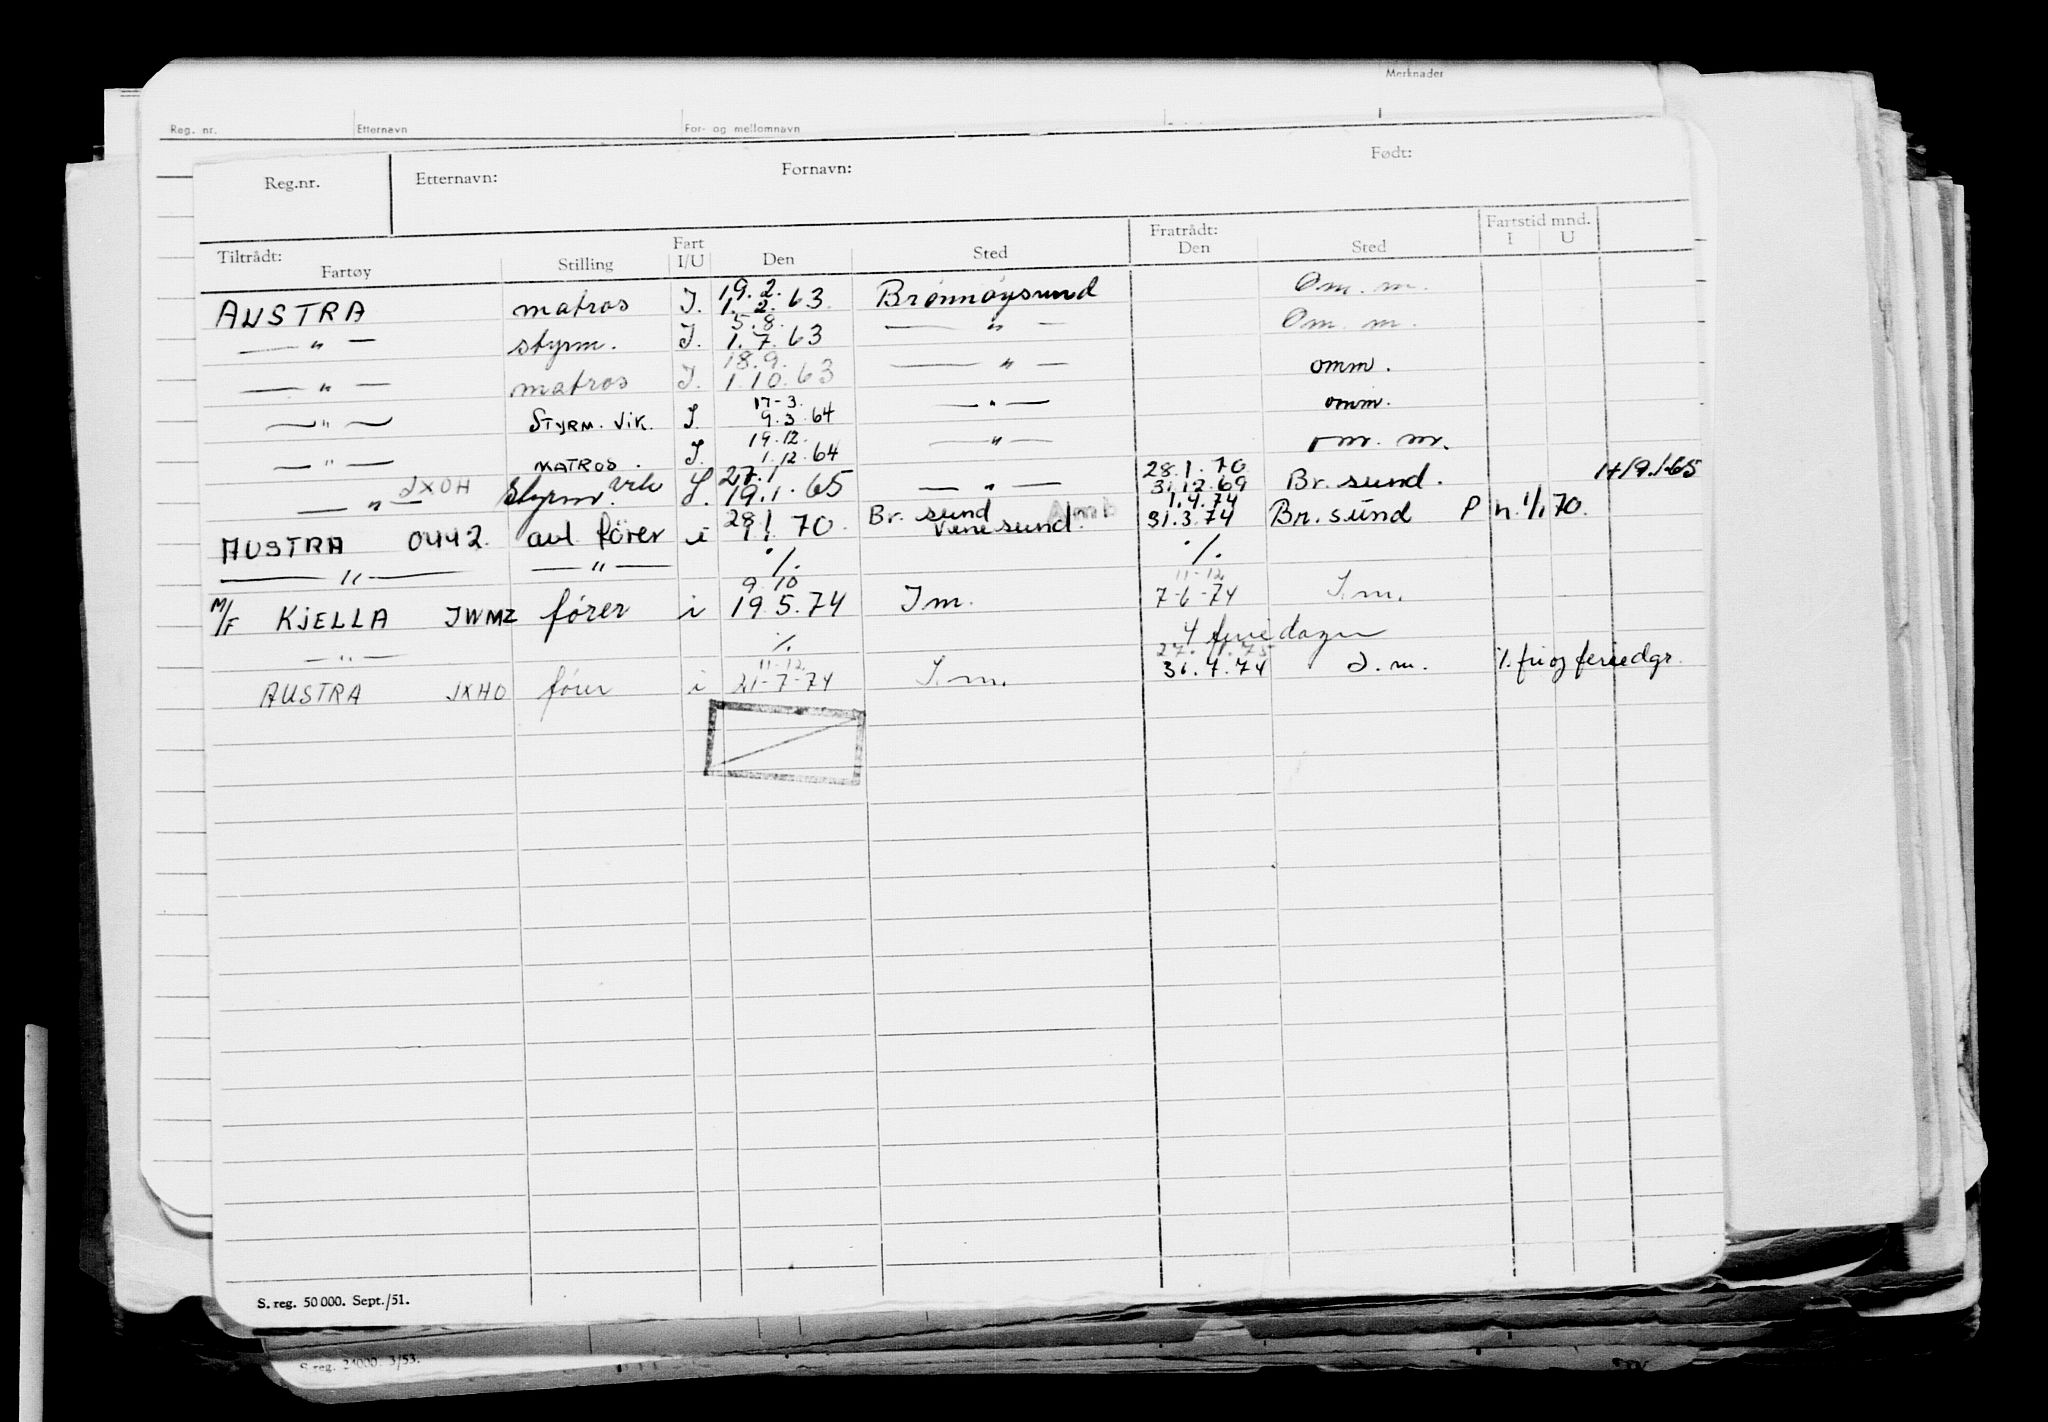 Merknader
Reg. nr. Etternavn For- og mellomnavn
Reg.nr. Etternavn: Fornavn: Født:
Tiltrådt: Fartøy Stilling Fart I/U Den Sted Fratrådt: Den Sted Fartstid mnd. I U
19.2.
AUSTRA matros I. 1.2.63. Brønnøysund Om. m.
5.8.
— " — styrm. I. 1.7.63 — " — Om. m.
18.9.
— " — matros I. 1.10.63 — " — omm.
17-3.
— " — STYRM. VIK. I. 9.3.64 — " — omm.
19.12.
— " — MATROS. I. 1.12.64 — " — om. m.
27.1 28.1.70
— " — JXOH Styrm. vik I. 19.1.65 — " — 31.12.69 Br. sund. 1+19.1.65
28.1 Br. sund 1.4.74
AUSTRA 0442 avl fører i 1.1.70. 31.3.74 Br. sund P n. 1/1 70.
— " — — " — ·/. ·/.
9/10 11-12
M/F KJELLA JWMZ fører i 19.5.74 I m. 7-6-74 I. m.
— " — ·/. 4 feriedager
11-12 27.1.75
AUSTRA JXHO fører i 21-7-74 I. m. 31.7.74 I. m. ·/. fri og feriedgr.
S. reg. 50 000. Sept./51.
S. reg. 24000. 3/53.